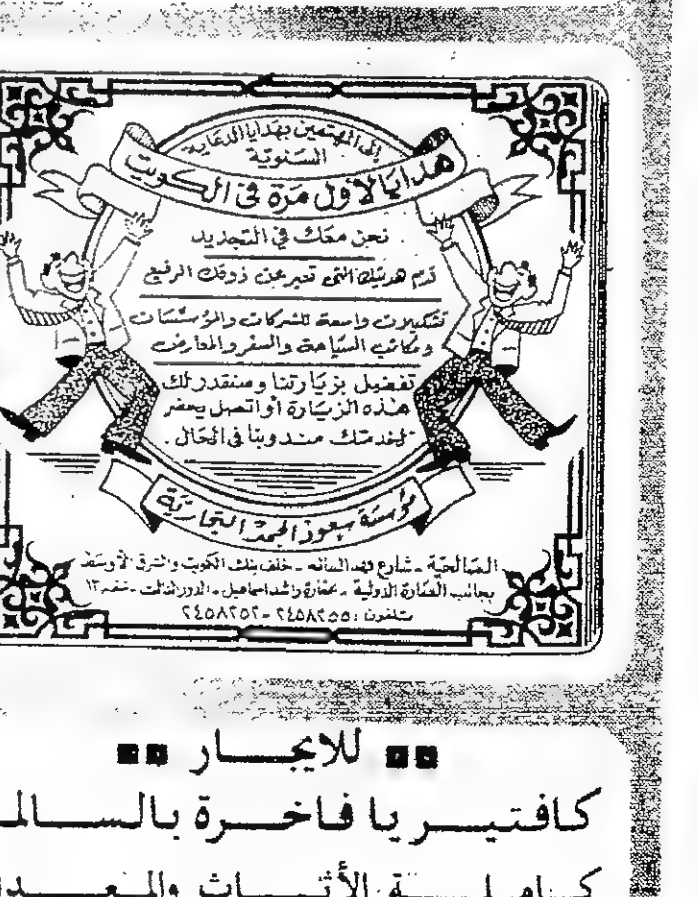 إلى المهتمين بهدايا الدعاية
السنوية
هدايا لأول مرة في الكويت
نحن معك في التجديد
قدم هديتك التي تعبر عن ذوقك الرفيع
تشكيلات واسعة للشركات والمؤسسات
ومكاتب السياحة والسفر والمعارض
تفضل بزيارتنا وسنقدر لك
هذه الزيارة أو اتصل يحضر
لخدمتك مندوبنا في الحال .
مؤسسة سعود الحمد التجارية
الصالحية - شارع فهد السالم - خلف بنك الكويت والشرق الأوسط
بجانب العمارة الدولية - عمارة راشد اسماعيل - الدور الثالث - شقة ١٣
تلفون : ٢٤٥٨٢٥٥ - ٢٤٥٨٢٥٢
للايجــار
كافتيــريا فاخــرة بالســالمـ
كــامــلــة الأثــاث والمــعــدا